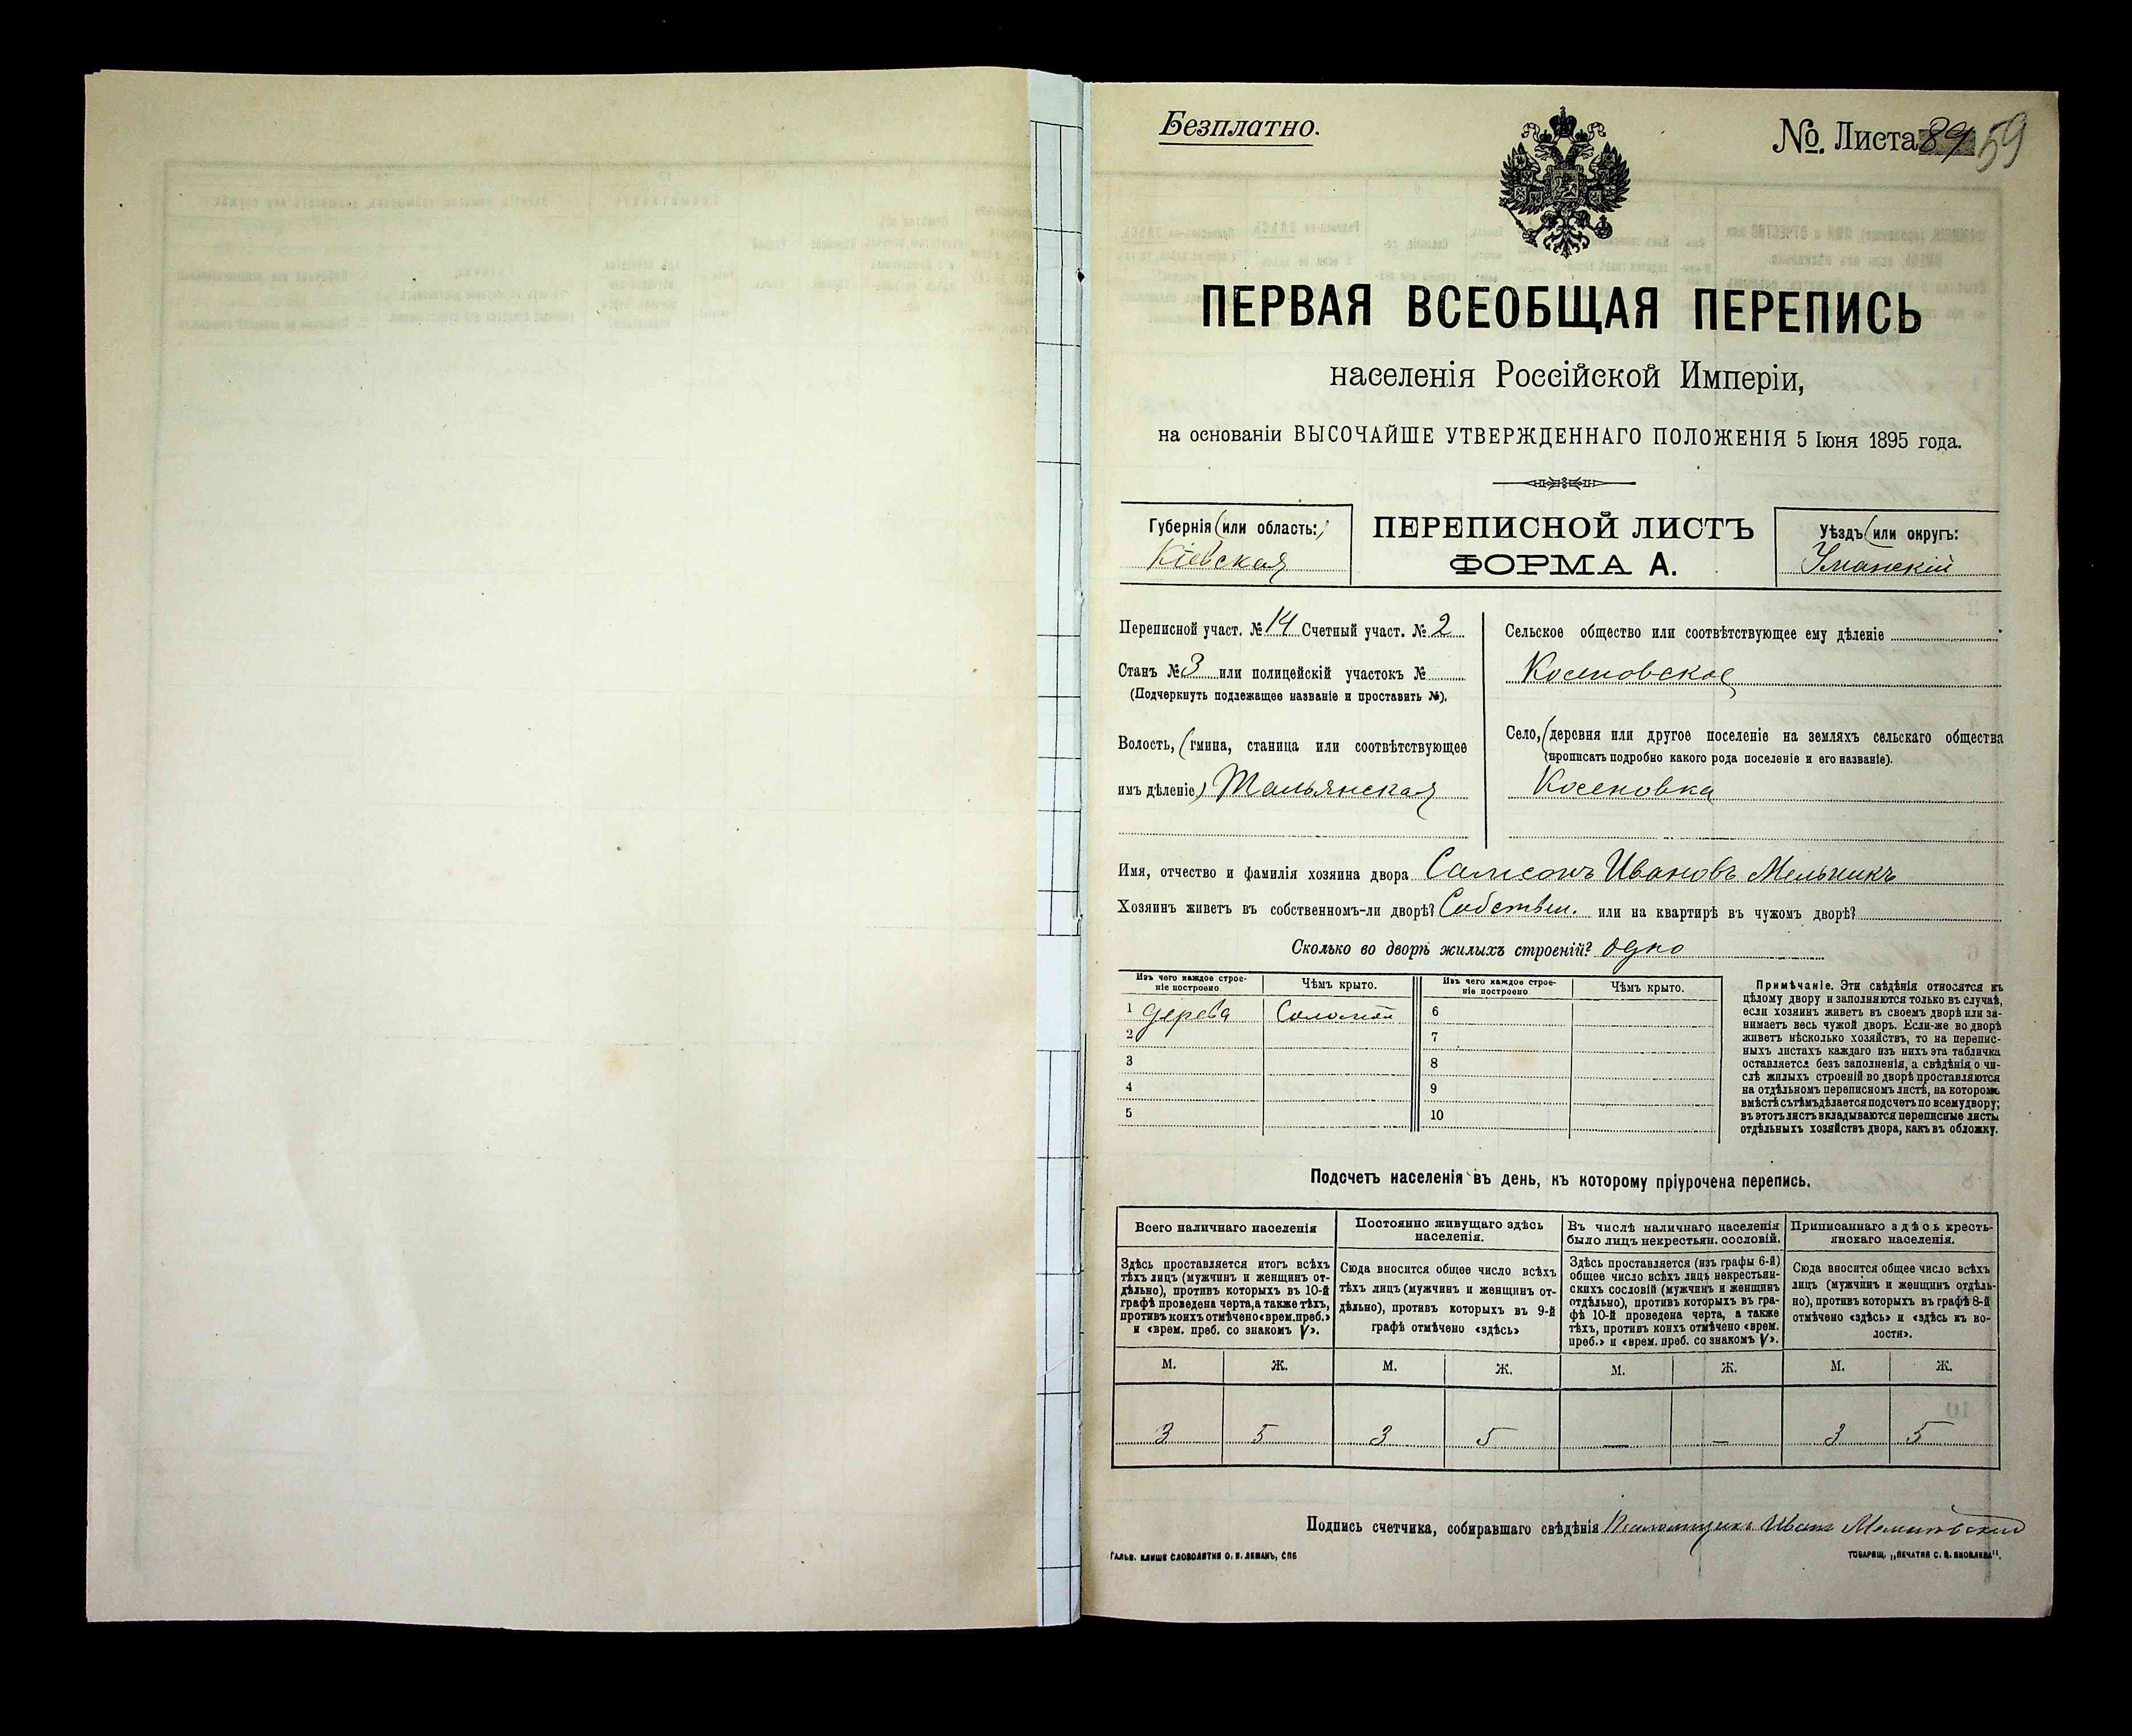 Безплатно.
№ Листа 89 59
ПЕРВАЯ ВСЕОБЩАЯ ПЕРЕПИСЬ
населенія Россійской Имперіи,
на основаніи ВЫСОЧАЙШЕ УТВЕРЖДЕННАГО ПОЛОЖЕНІЯ 5 Іюня 1895 года.
Губернія (или область:)
Кіевская
ПЕРЕПИСНОЙ ЛИСТЪ
ФОРМА А.
Уѣздъ (или округъ:
Уманскій
Переписной участ. № 14 Счетный участ. № 2
Станъ № 3 или полицейскій участокъ №
(Подчеркнуть подлежащее названіе и проставить №).
Волость, (гмина, станица или соотвѣтствующее
имъ дѣленіе) Тальянская
Сельское общество или соотвѣтствующее ему дѣленіе
Косеновское
Село, (деревня или другое поселеніе на земляхъ сельскаго общества
(прописать подробно какого рода поселеніе и его названіе).
Косеновка
Имя, отчество и фамилія хозяина двора Самсонъ Ивановъ Мельникъ
Хозяинъ живетъ въ собственномъ-ли дворѣ? Собствен. или на квартирѣ въ чужомъ дворѣ?
Сколько во дворѣ жилыхъ строеній? одно
Изъ чего каждое строе-
ніе построено
Чѣмъ крыто.
Изъ чего каждое строе-
ніе построено
Чѣмъ крыто.
1 дерева Соломой 6
2 7
3 8
4 9
5 10
Примѣчаніе. Эти свѣдѣнія относятся къ
цѣлому двору и заполняются только въ случаѣ,
если хозяинъ живетъ въ своемъ дворѣ или за-
нимаетъ весь чужой дворъ. Если-же во дворѣ
живетъ нѣсколько хозяйствъ, то на перепис-
ныхъ листахъ каждаго изъ нихъ эта табличка
оставляется безъ заполненія, а свѣдѣнія о чи-
слѣ жилыхъ строеній во дворѣ проставляются
на отдѣльномъ переписномъ листѣ, на которомъ
вмѣстѣ съ тѣмъ дѣлается подсчетъ по всему двору;
въ этотъ листъ вкладываются переписные листы
отдѣльныхъ хозяйствъ двора, какъ въ обложку.
Подсчетъ населенія въ день, къ которому пріурочена перепись.
Всего наличнаго населенія
Здѣсь проставляется итогъ всѣхъ
тѣхъ лицъ (мужчинъ и женщинъ от-
дѣльно), противъ которыхъ въ 10-й
графѣ проведена черта, а также тѣхъ,
противъ коихъ отмѣчено «врем. преб.»
и «врем. преб. со знакомъ V».
Постоянно живущаго здѣсь
населенія.
Сюда вносится общее число всѣхъ
тѣхъ лицъ (мужчинъ и женщинъ от-
дѣльно), противъ которыхъ въ 9-й
графѣ отмѣчено «здѣсь»
Въ числѣ наличнаго населенія
было лицъ некрестьян. сословій.
Здѣсь проставляется (изъ графы 6-й)
общее число всѣхъ лицъ некрестьян-
скихъ сословій (мужчинъ и женщинъ
отдѣльно), противъ которыхъ въ гра-
фѣ 10-й проведена черта, а также
тѣхъ, противъ коихъ отмѣчено «врем.
преб.» и «врем. преб. со знакомъ V».
Приписаннаго здѣсь кресть-
янскаго населенія.
Сюда вносится общее число всѣхъ
лицъ (мужчинъ и женщинъ отдѣль-
но), противъ которыхъ въ графѣ 8-й
отмѣчено «здѣсь» и «здѣсь къ во-
лости».
М. Ж. М. Ж. М. Ж. М. Ж.
3 5 3 5 — — 3 5
Подпись счетчика, собиравшаго свѣдѣнія Иван
Гальв. клише словолитни О. И. Леманъ, СПб
Товарищ. „Печатня С. П. Яковлева".